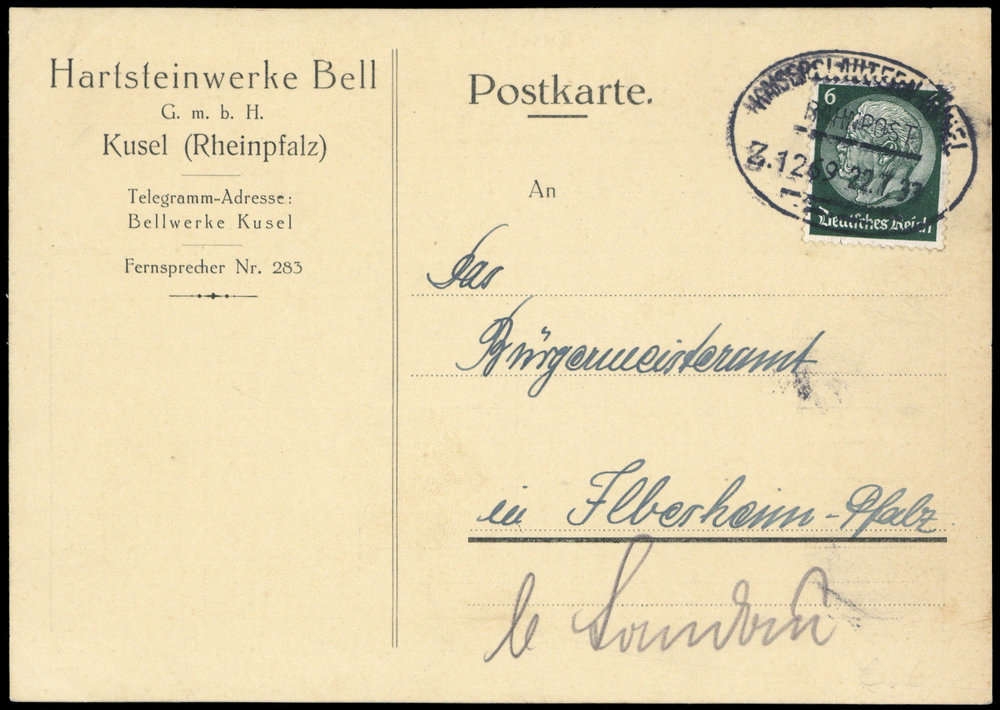 Hartsteinwerke Bell
G. m. b. H.
Kusel (Rheinpfalz)
Telegramm-Adresse:
Bellwerke Kusel
Fernsprecher Nr. 283
Postkarte.
KAISERSLAUTERN KUSEL
BAHNPOST
Z.1269 22.7.37
6
Deutsches Reich
An
Das
Bürgermeisteramt
in Ilbesheim-Pfalz
b Landau